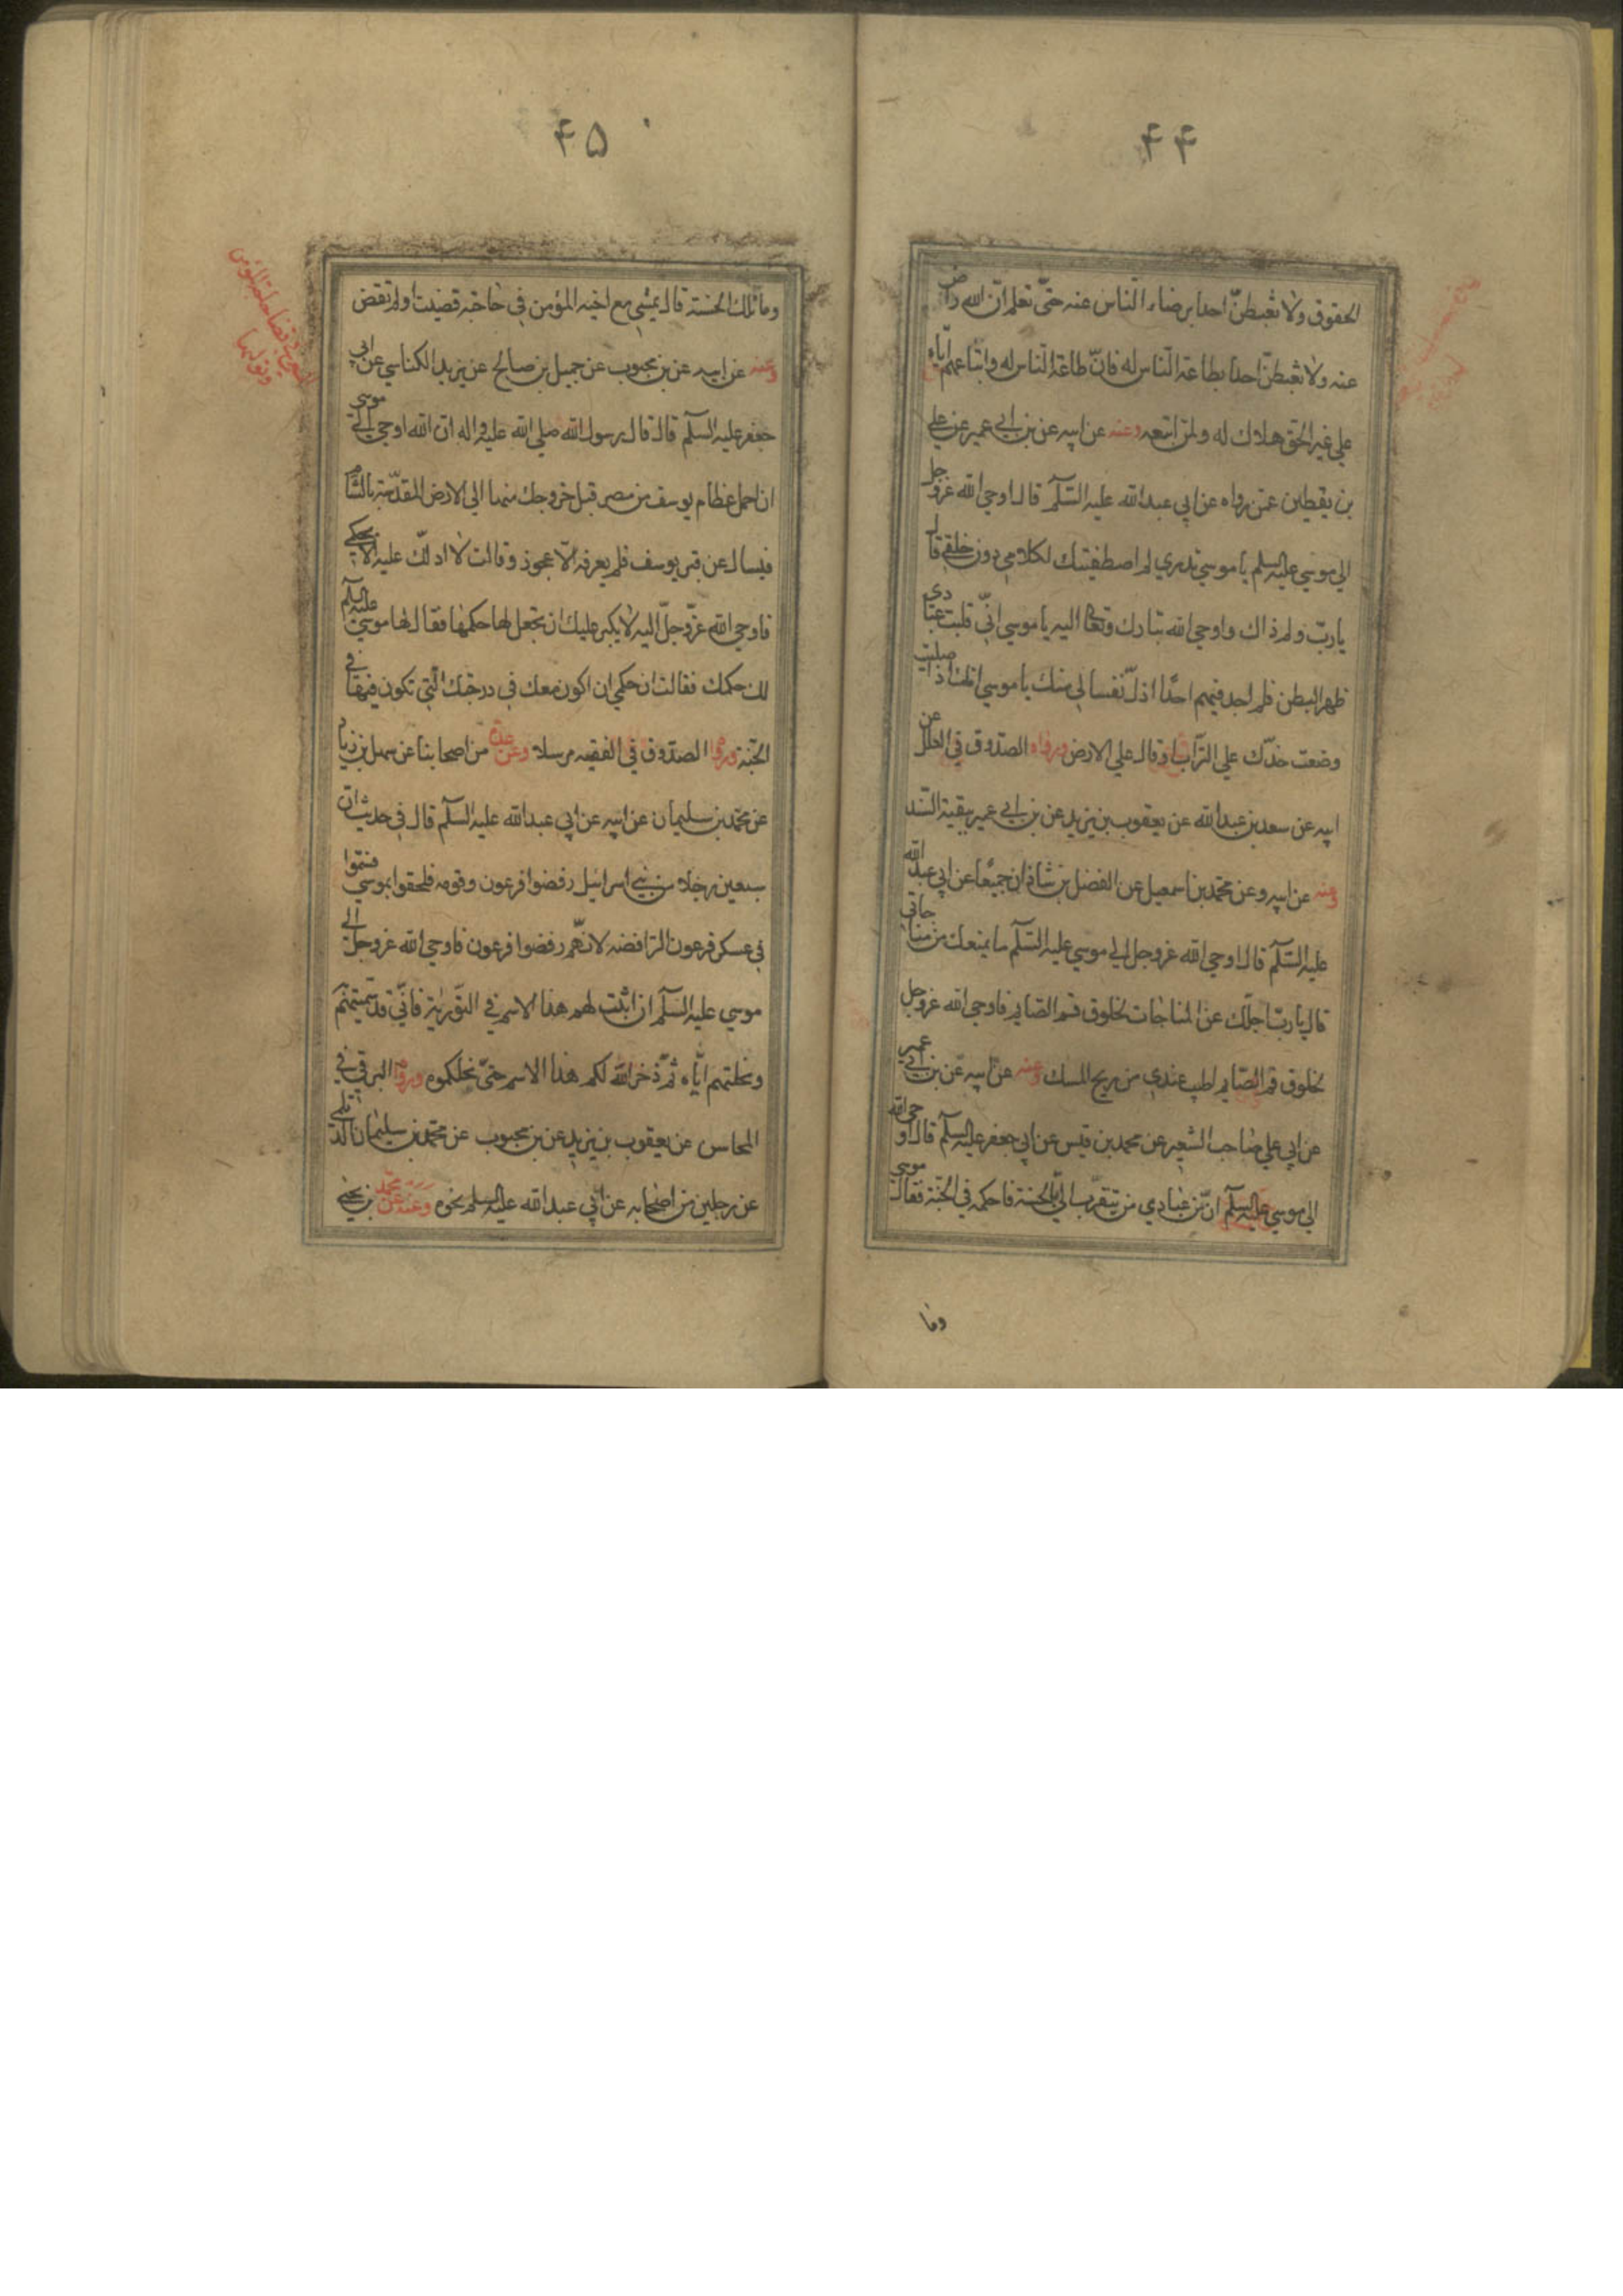 ۴۴
الحقوق ولا تغبطنّ احدا برضاء الناس عنه حتّى تعلم انّ الله راض
عنه ولا تغبطنّ احدا بطاعة النّاس له فانّ طاعة النّاس له واتباعهم ايّاه
علي غير الحق هلاك له ولمن اتبعه وعنه عن ابيه عن بن ابي عمير عن علي
بن يقطين عمّن رواه عن ابي عبدالله عليه السّلم قال اوحي الله عزوجل
الي موسي عليه السلم يا موسي تدري لم اصطفيتك لكلامي دون خلقي قال
يا ربّ ولم ذاك واوحي الله تبارك وتعا اليه يا موسي انّي قلبت عبادي
ظهر البطن فلم اجد فيهم احدًا اذلّ نفسا لي منك يا موسي انك اذا صليت
وضعت خدّك علي التراب او قال علي الارض ورواه الصدوق في العلل عن
ابيه عن سعد بن عبدالله عن يعقوب بن يزيد عن بن ابي عمير ببقية السّند
وعنه عن ابيه وعن محمّد بن اسمعيل عن الفضل بن شاذان جميعًا عن ابي عبدالله
عليه السّلم قال اوحي الله عزوجل الي موسي عليه السّلم ما يمنعك من مناجاتي
قال يا ربّ اجلّك عن المناجات لخلوق فم الصايم فاوحي الله عزوجل
لخلوق فم الصّايم اطيب عندي من ريح المسك وعنه عن ابيه عن بن ابي عمير
عن ابي علي صاحب الشعير عن محمد بن قيس عن ابي جعفر عليه السلم قال اوحي الله
الي موسي عليه السلم انّ من عبادي من يتقرّب اليّ بالحسنة فاحكمه في الجنّة فقال موسي
وما
۴۵
وما تلك الحسنة قال يمشي مع اخيه المؤمن في حاجته قضيت او لم تقض
وعنه عن ابيه عن بن محبوب عن جميل بن صالح عن يزيد الكناسي عن ابي
جعفر عليه السلم قال قال رسول الله صلي الله عليه واله ان الله اوحي الي موسي
ان احمل عظام يوسف من مصر قبل خروجك منها الي الارض المقدّسة بالشام
فيسال عن قبر يوسف فلم يعرفه الّا عجوز وقالت لا ادلّك عليه الا بحكمي
فاوحي الله عزّوجلّ اليه لا يكبر عليك ان تجعل لها حكمها فقال لها موسي عليه السلم
لك حكمك فقالت ان حكمي ان اكون معك في درجتك الّتي تكون فيها في
الجنّة ورواه الصدّوق في الفقيه مرسلا وعن عدة من اصحابنا عن سهل بن زياد
عن محمّد بن سليمان عن ابيه عن ابي عبدالله عليه السّلم قال في حديث ان
سبعين رجلا من بني اسرائيل رفضوا فرعون وقومه فلحقوا بموسي فسمّوا
في عسكر فرعون الرّافضه لانهم رفضوا فرعون فاوحي الله عزوجل الي
موسي عليه السلم ان اثبت لهم هذا الاسم في التّوريٰة فانّي قد سمّيتهم
ونحلتهم ايّاه ثمّ ذخر الله لكم هذا الاسم حتّى نحلكموه ورواه البرقي في
المحاسن عن يعقوب بن يزيد عن بن محبوب عن محمّد بن سليمان الديلمي
عن رجلين من اصحابه عن ابي عبدالله عليه السلم نحوه وعنه عن محمد بن يحيي